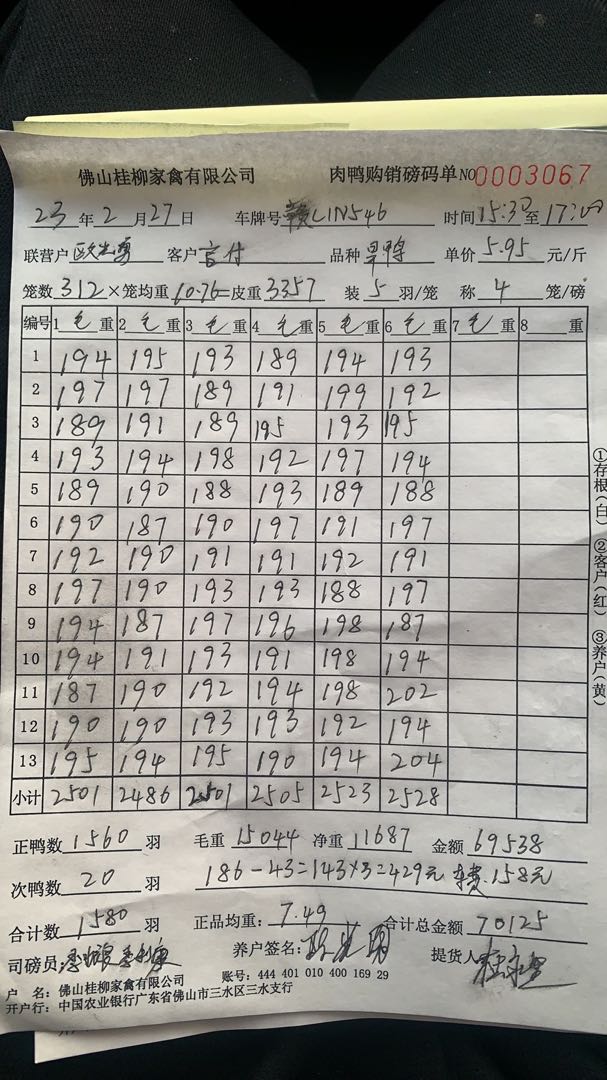 佛山桂柳家禽有限公司 肉鸭购销磅码单 NO0003067
23年2月27日 车牌号赣L1N546 时间15:30至17:00
联营户 客户 品种 单价5.95元/斤
笼数312×笼均重10.76=皮重3357 装5羽/笼 称4笼/磅
编号 1毛重 2毛重 3毛重 4毛重 5毛重 6毛重 7毛重 8重
1 194 195 193 189 194 193
2 197 197 189 191 199 192
3 189 191 189 195 193 195
4 193 194 198 192 197 194
5 189 190 188 193 189 188
6 190 187 190 197 191 197
7 192 190 191 191 192 191
8 197 190 193 193 188 197
9 194 187 197 196 198 187
10 194 191 193 191 198 194
11 187 190 192 194 198 202
12 190 190 193 193 192 194
13 195 194 195 190 194 204
小计 2501 2486 2501 2505 2523 2528
正鸭数1560羽 毛重15044 净重11687 金额69538
次鸭数20羽 186-43=143×3=429元 158元
合计数1580羽 正品均重:7.49 合计总金额70125
司磅员: 养户签名: 提货人
户 名:佛山桂柳家禽有限公司 账号:444 401 010 400 169 29
开户行:中国农业银行广东省佛山市三水区三水支行
①存根(白) ②客户(红) ③养户(黄)